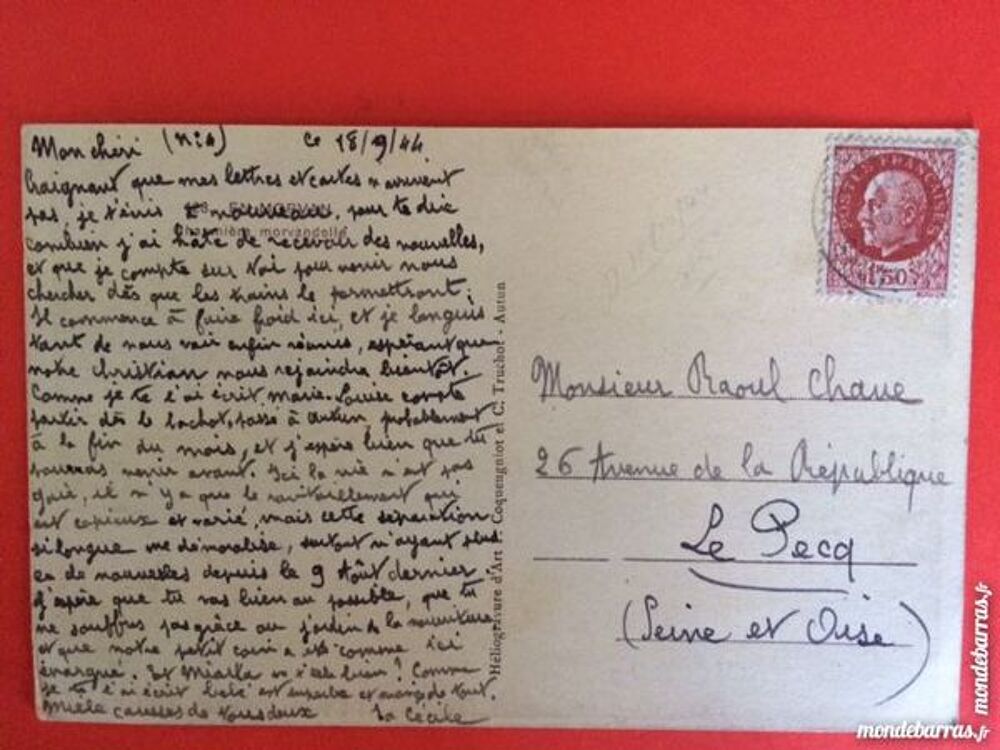 Mon chéri (n°4) ce 18/9/44
Craignant que mes lettres et cartes n'arrivent
pas, je t'écris à nouveau, pour te dire
combien j'ai hâte de recevoir des nouvelles,
et que je compte sur toi pour venir nous
chercher dès que les trains le permettront.
Il commence à faire froid ici, et je languis
tant de nous voir enfin réunis, espérant que
notre Christian nous rejoindra bientôt.
Comme je te l'ai écrit, Marie-Louise compte
partir dès le passé à Autun, probablement
à la fin du mois, et j'espère bien que tu
pourras venir avant. Ici la vie n'est pas
gaie, il n'y a que le ravitaillement qui
est copieux et varié, mais cette séparation
si longue me démoralise, surtout n'ayant plus
eu de nouvelles depuis le 9 Août dernier.
J'espère que tu vas bien au possible, que tu
ne souffres pas grâce au jardin de la nourriture
et que notre petit coin a été comme ici
épargné. Et est-elle bien? Comme
je te l'ai écrit bébé est superbe et mange de tout.
Mille caresses de tous deux ta Cécile
EN MORVAN
Chaumière morvandelle
Héliogravure d'Art - Coqueugniot et C. Truchot - Autun
POSTES FRANÇAISES
1F50
Monsieur Raoul Chaue
26 Avenue de la République
Le Pecq
(Seine et Oise)
mondebarras.fr
mondebarras.fr